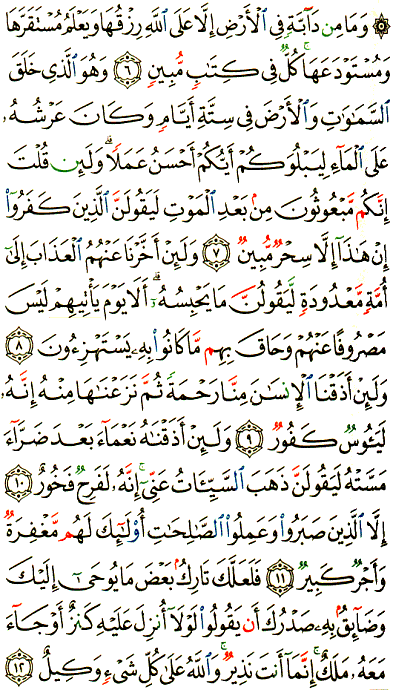 ۞ وَمَا مِن دَآبَّةٍ فِي ٱلْأَرْضِ إِلَّا عَلَى ٱللَّهِ رِزْقُهَا وَيَعْلَمُ مُسْتَقَرَّهَا
وَمُسْتَوْدَعَهَا ۚ كُلٌّ فِي كِتَٰبٍ مُّبِينٍ ٦ وَهُوَ ٱلَّذِي خَلَقَ
ٱلسَّمَٰوَٰتِ وَٱلْأَرْضَ فِي سِتَّةِ أَيَّامٍ وَكَانَ عَرْشُهُۥ
عَلَى ٱلْمَآءِ لِيَبْلُوَكُمْ أَيُّكُمْ أَحْسَنُ عَمَلًا ۗ وَلَئِن قُلْتَ
إِنَّكُم مَّبْعُوثُونَ مِنۢ بَعْدِ ٱلْمَوْتِ لَيَقُولَنَّ ٱلَّذِينَ كَفَرُوٓا۟
إِنْ هَٰذَآ إِلَّا سِحْرٌ مُّبِينٌ ٧ وَلَئِنْ أَخَّرْنَا عَنْهُمُ ٱلْعَذَابَ إِلَىٰٓ
أُمَّةٍ مَّعْدُودَةٍ لَّيَقُولُنَّ مَا يَحْبِسُهُۥٓ ۗ أَلَا يَوْمَ يَأْتِيهِمْ لَيْسَ
مَصْرُوفًا عَنْهُمْ وَحَاقَ بِهِم مَّا كَانُوا۟ بِهِۦ يَسْتَهْزِءُونَ ٨
وَلَئِنْ أَذَقْنَا ٱلْإِنسَٰنَ مِنَّا رَحْمَةً ثُمَّ نَزَعْنَٰهَا مِنْهُ إِنَّهُۥ
لَيَـُٔوسٌ كَفُورٌ ٩ وَلَئِنْ أَذَقْنَٰهُ نَعْمَآءَ بَعْدَ ضَرَّآءَ
مَسَّتْهُ لَيَقُولَنَّ ذَهَبَ ٱلسَّيِّـَٔاتُ عَنِّيٓ ۚ إِنَّهُۥ لَفَرِحٌ فَخُورٌ ١٠
إِلَّا ٱلَّذِينَ صَبَرُوا۟ وَعَمِلُوا۟ ٱلصَّٰلِحَٰتِ أُو۟لَٰٓئِكَ لَهُم مَّغْفِرَةٌ
وَأَجْرٌ كَبِيرٌ ١١ فَلَعَلَّكَ تَارِكٌۢ بَعْضَ مَا يُوحَىٰٓ إِلَيْكَ
وَضَآئِقٌۢ بِهِۦ صَدْرُكَ أَن يَقُولُوا۟ لَوْلَآ أُنزِلَ عَلَيْهِ كَنزٌ أَوْ جَآءَ
مَعَهُۥ مَلَكٌ ۚ إِنَّمَآ أَنتَ نَذِيرٌ ۚ وَٱللَّهُ عَلَىٰ كُلِّ شَيْءٍ وَكِيلٌ ١٢